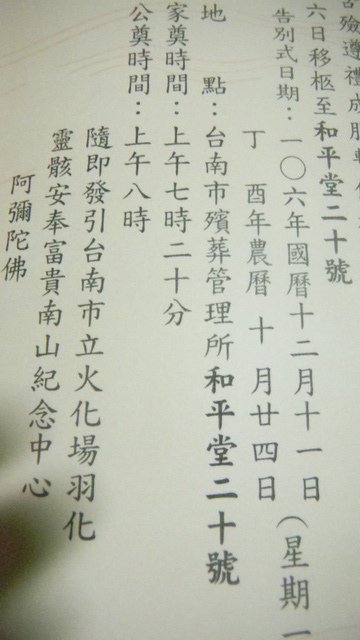 殮遵禮成服
六日移柩至和平堂二十號
告別式日期：一〇六年國曆十二月十一日（星期一
丁酉年農曆十月廿四日
地點：台南市殯葬管理所和平堂二十號
家奠時間：上午七時二十分
公奠時間：上午八時
隨即發引台南市立火化場羽化
靈骸安奉富貴南山紀念中心
阿彌陀佛